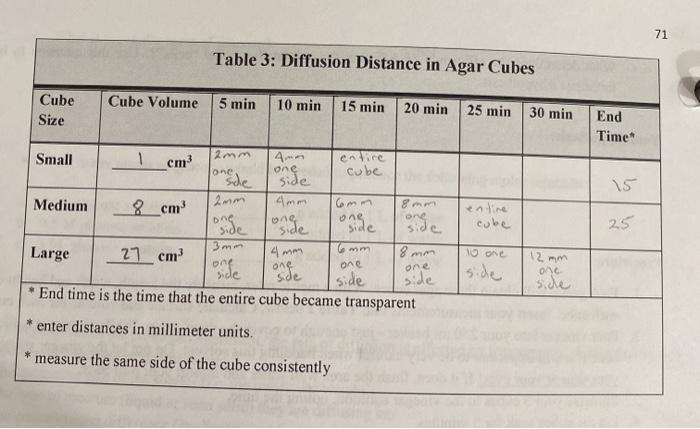 71
Table 3: Diffusion Distance in Agar Cubes
Cube Size | Cube Volume | 5 min | 10 min | 15 min | 20 min | 25 min | 30 min | End Time*
Small | 1 cm³ | 2mm one side | 4mm one side | entire cube | | | | 15
Medium | 8 cm³ | 2mm one side | 4mm one side | 6mm one side | 8mm one side | entire cube | | 25
Large | 27 cm³ | 3mm one side | 4mm one side | 6mm one side | 8mm one side | 10 one side | 12mm one side |
* End time is the time that the entire cube became transparent
* enter distances in millimeter units.
* measure the same side of the cube consistently